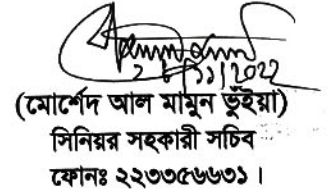 ২৮/১১/২০২২
(মোর্শেদ আল মামুন ভুঁইয়া)
সিনিয়র সহকারী সচিব
ফোনঃ ২২৩৩৫৬৬৩১।